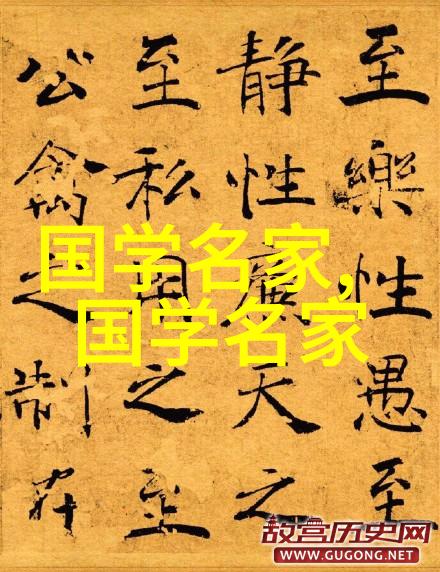 至樂性愚至
静性廉天之
至私用之至
公禽之制在
国学名家,
国学名家
故宫历史网
WWW.GUGONG.NET